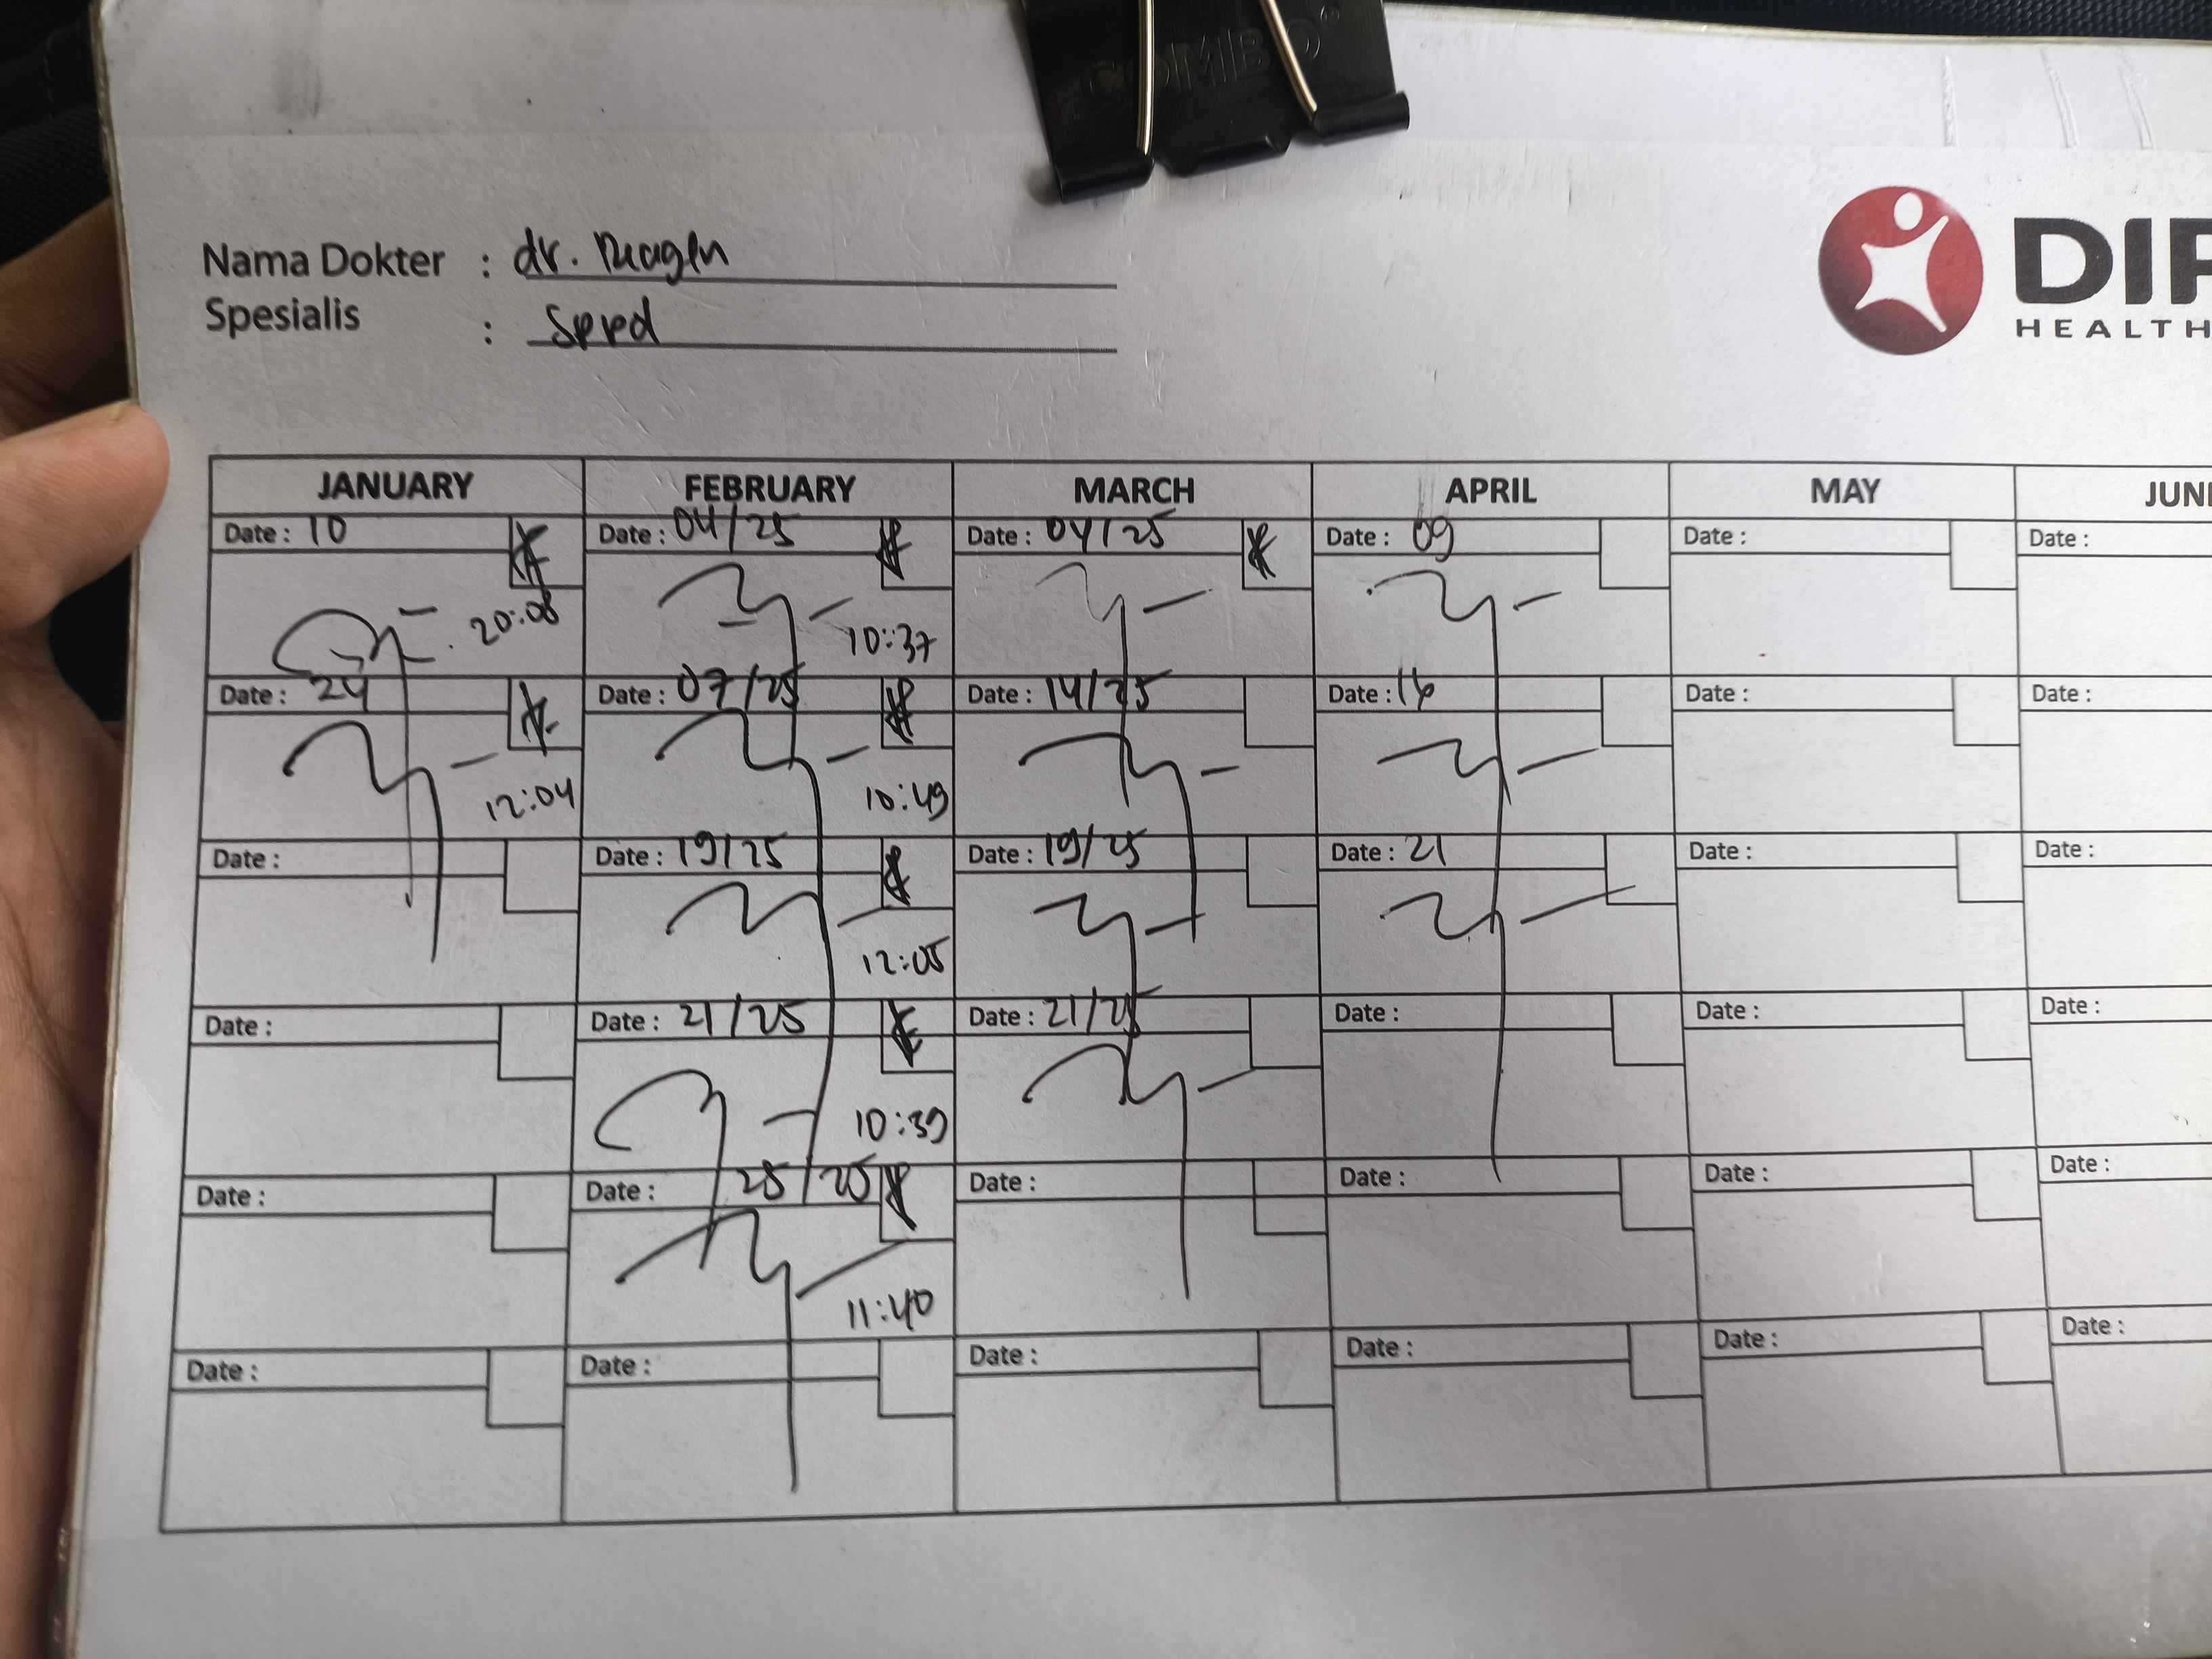 COMBO
Nama Dokter : dr. Reagen
Spesialis : Sppd
DIP
HEALTH
JANUARY FEBRUARY MARCH APRIL MAY JUN
Date : 10 Date : 04/25 Date : 04/25 Date : 09 Date : Date :
20:08 10:37
Date : 24 Date : 07/25 Date : 14/25 Date : 16 Date : Date :
12:04 10:49
Date : Date : 19/25 Date : 19/25 Date : 21 Date : Date :
12:05
Date : Date : 21/25 Date : 21/25 Date : Date : Date :
10:39
Date : Date : 25/25 Date : Date : Date : Date :
11:40
Date : Date : Date : Date : Date : Date :